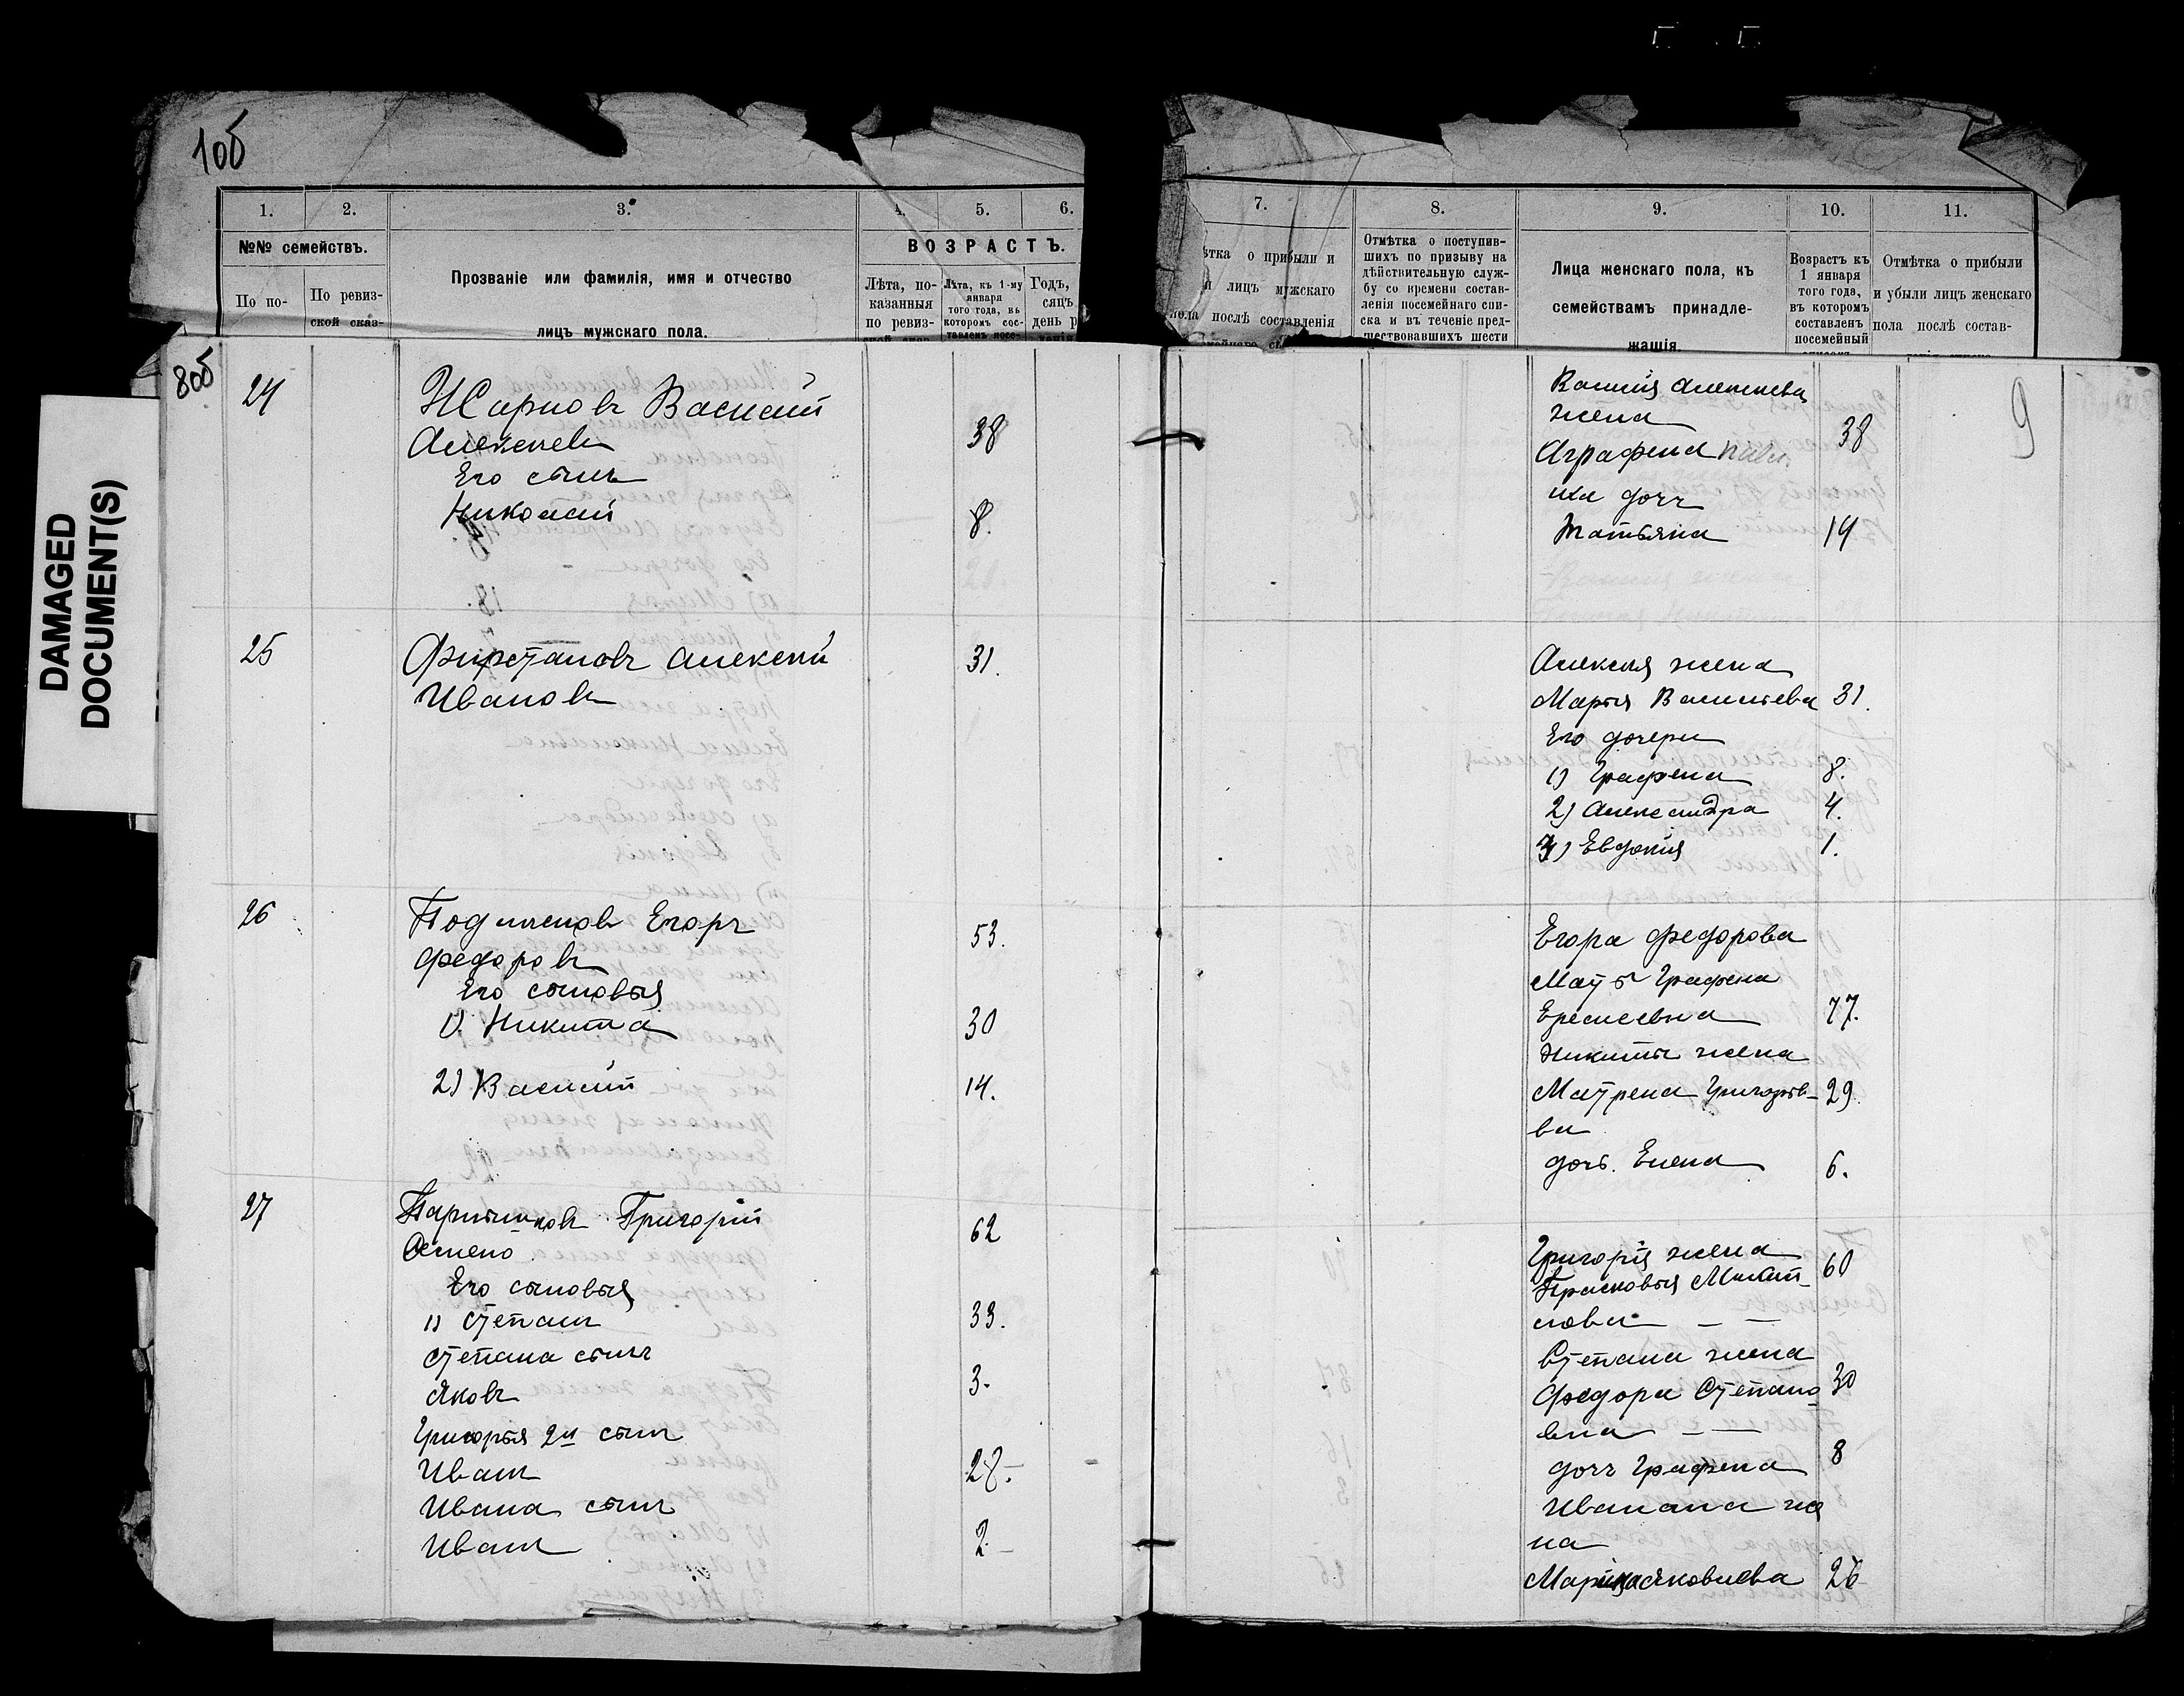 10б
1. 2. 3. 4. 5. 6.
№№ семействъ.
По по-
По ревиз-
ской сказ-
Прозваніе или фамилія, имя и отчество
лицъ мужскаго пола.
ВОЗРАСТЪ.
Лѣта, по-
казанныя
по ревиз-
Лѣта, къ 1-му
января
того года, въ
которомъ сос-
Годъ,
сяцъ
день р
7. 8. 9. 10. 11.
ѣтка о прибыли и
и лицъ мужскаго
пола послѣ составленія
Отмѣтка о поступив-
шихъ по призыву на
дѣйствительную служ-
бу со времени состав-
ленія посемейнаго спи-
ска и въ теченіе пред-
шествовавшихъ шести
Лица женскаго пола, къ
семействамъ принадле-
жащія.
Возрастъ къ
1 января
того года,
въ которомъ
составленъ
посемейный
Отмѣтка о прибыли
и убыли лицъ женскаго
пола послѣ состав-
DAMAGED
DOCUMENT(S)
8об
24
Жарковъ Василий
Алексеевъ 38
Его сынъ
Николай 8.
25
Алексей 31.
Ивановъ
26
Егоръ 53.
Федоровъ
Его сыновья
1). Никита 30
2) Василий 14.
27
Григорий 62
Его сыновья
1) Степанъ 33.
Степана сынъ
Яковъ 3.
Григорья 2й сынъ
Иванъ 28.
Ивана сынъ
Иванъ 2.
9
Василия Алексеева
жена 38
Аграфена
дочъ
Татьяна 14
Алексея жена
Марья Васильева 31.
Его дочери
1) Графена 8.
2) Александра 4.
3) Евдокия 1.
Егора Федорова
Мать Графена
77.
Никиты жена
Матрена Григорьв- 29
ва
дочь. Елена 6.
Григорія жена 60
Прасковья
Степана жена
Федора Степано 30
вна
дочъ Графена 8
Иванана же
на
Яковлева 26